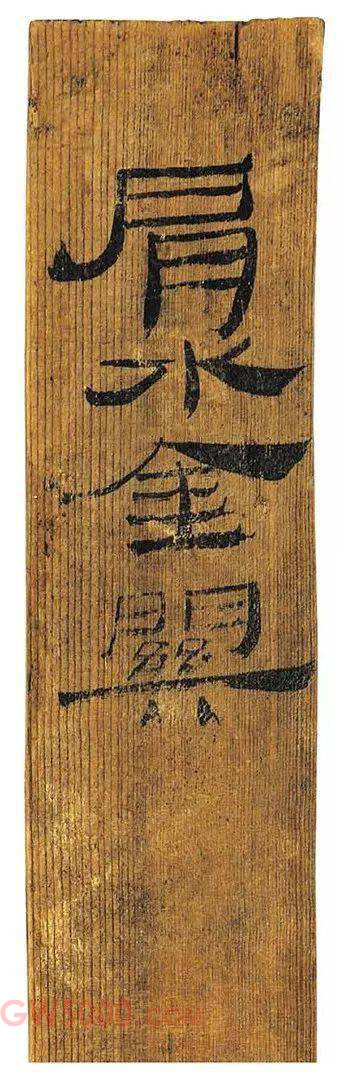 肩水金關
GW5000.com